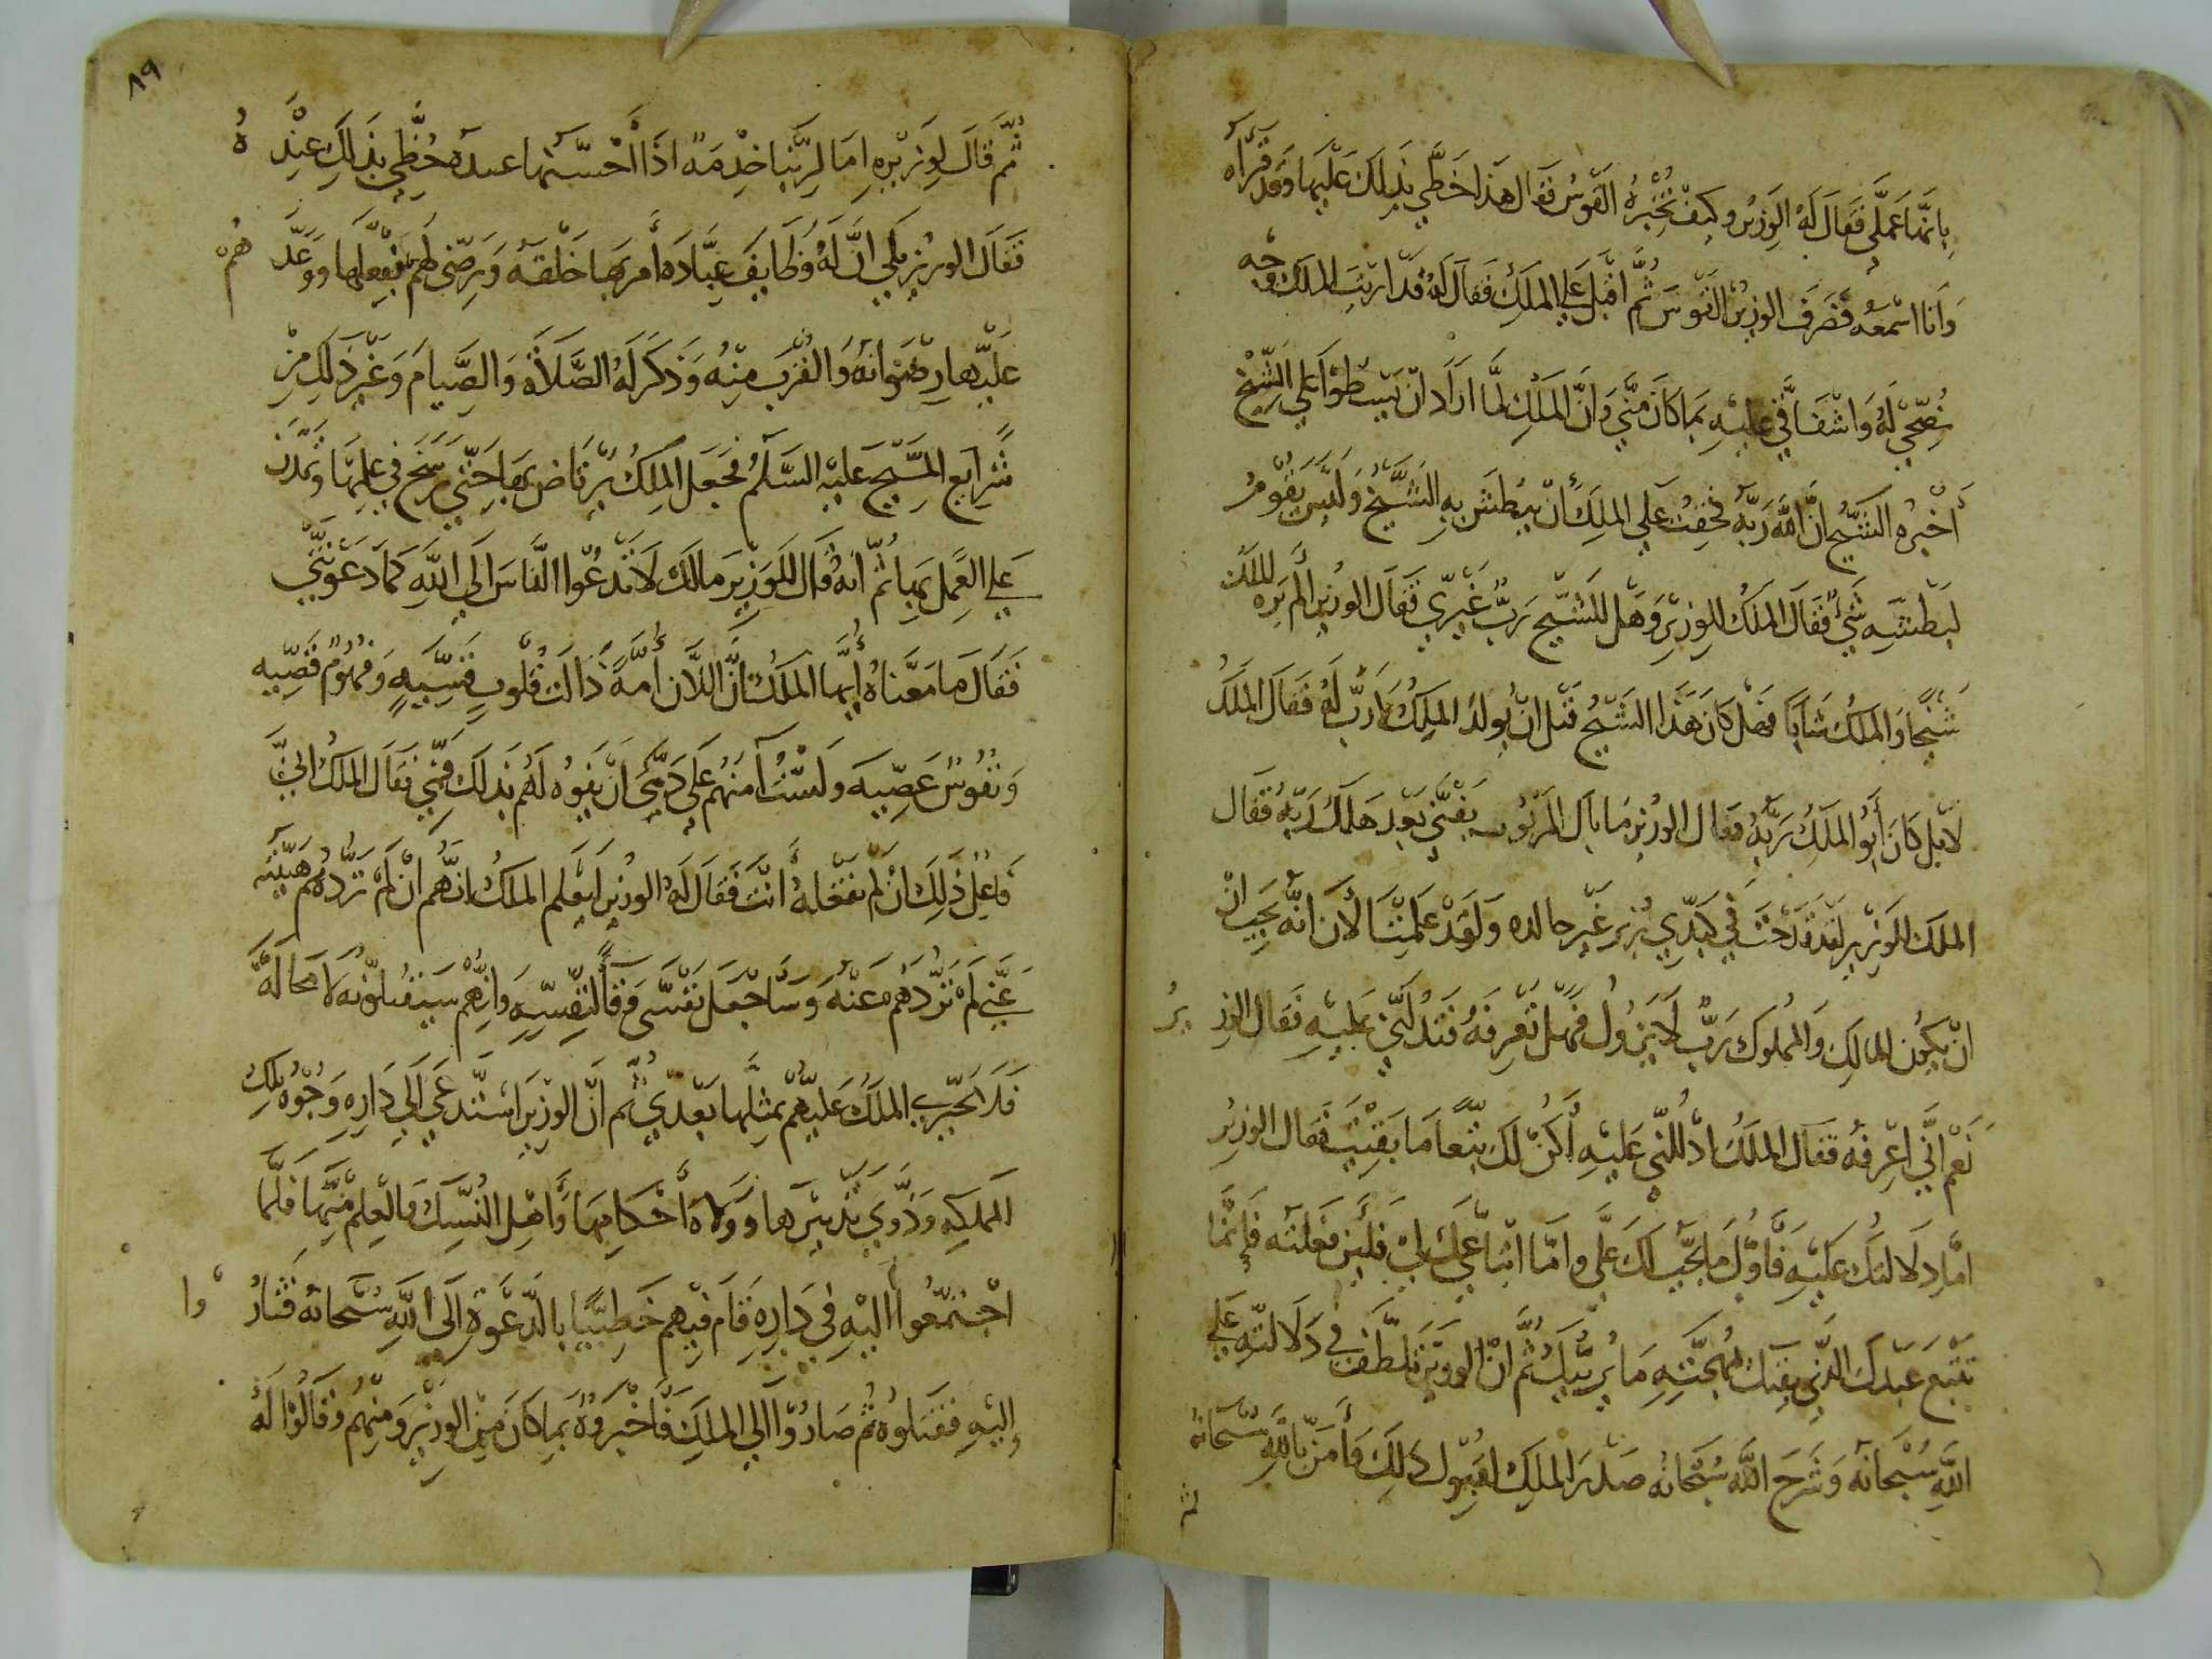 بانها عملي فقال له الوزير وكيف تخبره القوس فقال هذا خطي بذلك عليها وقد قرآه
وانا اسمعه فصرف الوزير القوس ثم اقبل علي الملك فقال له قد اريت الملك وجه
نصحي له واشفاقي عليه بما كان مني وان الملك لما اراد ان يبسطوا علي الشيخ
أخبره الشيخ ان الله ربه فخفت علي الملك أن يبطش به الشيخ وليس يقوم
لبطشه شيء فقال الملك للوزير وهل للشيخ رب غيري فقال الوزير ألم يره الملك
شيخا والملك شابا فهل كان هذا الشيخ قبل ان يولد الملك لا رب له فقال الملك
لا بل كان أبو الملك ربه فقال الوزير ما بال المربوب يبقي بعد هلاك ربه فقال
الملك للوزير لقد قدحت في كبدي بزير غير خالده ولقد علمت الآن انه يجب ان
ان يكون للمالك والمملوك رب لا يزول فهل تعرفه فتدلني عليه فقال الوزير
نعم اني اعرفه فقال الملك ادللني عليه أكن لك تبعا ما بقيت فقال الوزير
اما دلالتك عليه فأول ما يجب لك علي واما اتباعك لي فلين فعلته فانما
تتبع عبدك الذي يقيك بمهجته ما يريبك ثم ان الوزير تلطف في دلالته علي
الله سبحانه وشرح الله سبحانه صدر الملك لقبول ذلك وأمن بالله سبحانه
ثم
٨٩
ثم قال لوزيره اما لربنا خدمة اذا أحسنها عبده حظي بذلك عنده
فقال الوزير بلي ان له وظايف عبادة أمر بها خلقه ورضي لهم بفعلها ووعدهم
عليها رضوانه والقرب منه وذكر له الصلاة والصيام وغير ذلك من
شرايع المسيح عليه السلم فجعل الملك يرتاض بها حتي رسخ في علمها وتمدن
علي العمل بها ثم انه قال للوزير مالك لا تدعوا الناس الي الله كما دعوتني
فقال ما معناه أيها الملك ان اللان أمة ذات قلوب قسية وفهوم قصيه
ونفوس عصيه ولست آمنهم علي دمي ان يفوه لهم بذلك فمي فقال الملك اني
فاعل ذلك ان لم تفعله أنت فقال له الوزير ليعلم الملك انهم ان لم تردهم هيبته
عني لم تردهم عنه وسأجعل نفسي وقاً لنفسه وانهم سيقتلونه لا محالة
فلا يجتري الملك عليهم بمثلها بعدي ثم ان الوزير استدعي الي داره وجوه تلك
المملكه وذوي تدبيرها وولاة أحكامها وأهل النسك والعلم منها فلما
اجتمعوا اليه في داره قام فيهم خطيبا بالدعوة الي الله سبحانه فثاروا
اليه فقتلوه ثم صاروا الي الملك فأخبروه بما كان من الوزير ومنهم وقالوا له